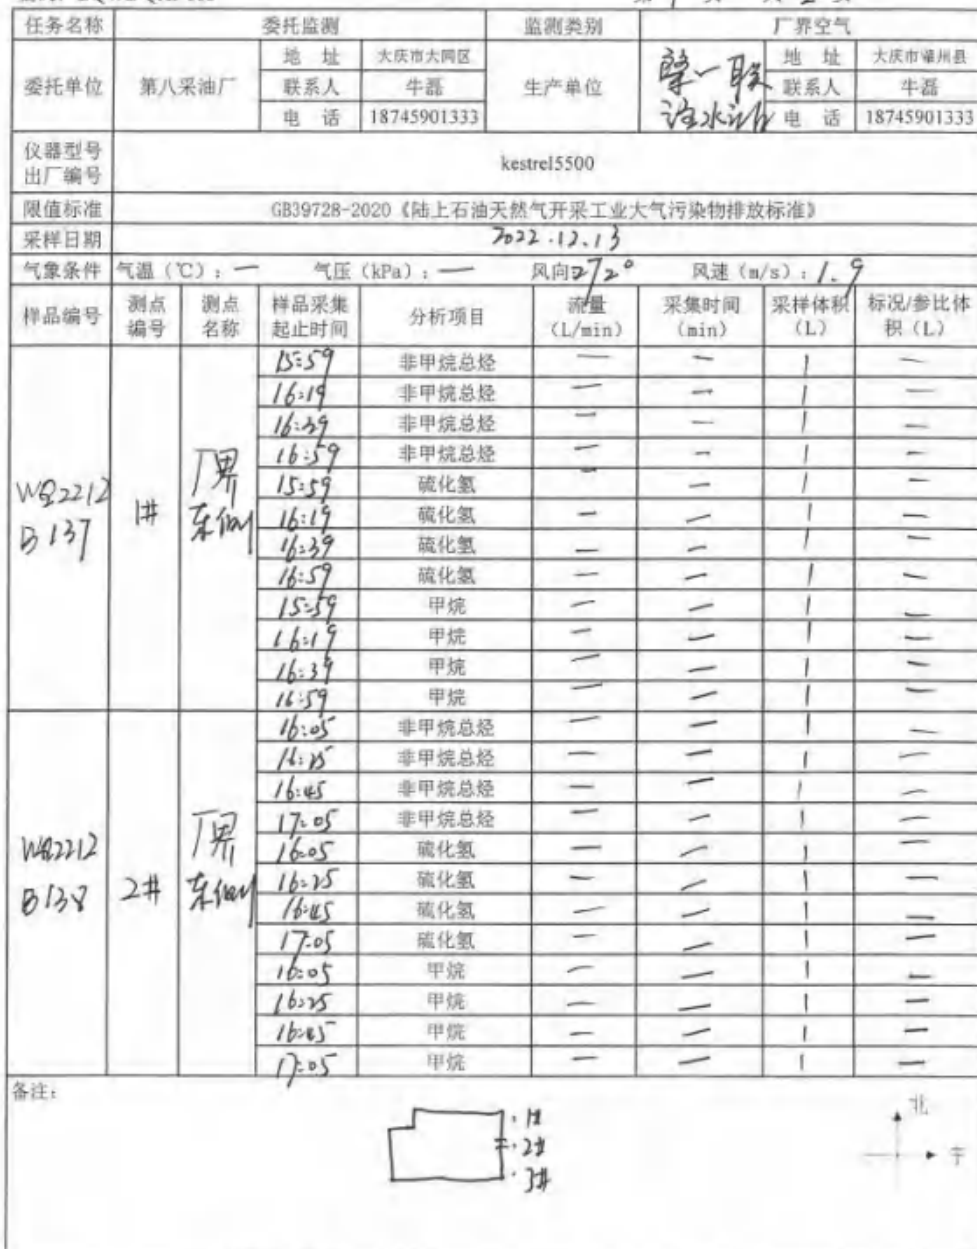 任务名称 委托监测 监测类别 厂界空气
委托单位 第八采油厂 地 址 大庆市大同区 生产单位 联 注水站 地 址 大庆市肇州县
联系人 牛磊 联系人 牛磊
电 话 18745901333 电 话 18745901333
仪器型号
出厂编号 kestrel5500
限值标准 GB39728-2020《陆上石油天然气开采工业大气污染物排放标准》
采样日期 2022.12.13
气象条件 气温（℃）：— 气压（kPa）：— 风向272° 风速（m/s）：1.9
样品编号 测点编号 测点名称 样品采集起止时间 分析项目 流量（L/min） 采集时间（min） 采样体积（L） 标况/参比体积（L）
WQ2212B137 1# 厂界东侧 15:59 非甲烷总烃 — — 1 —
16:19 非甲烷总烃 — — 1 —
16:39 非甲烷总烃 — — 1 —
16:59 非甲烷总烃 — — 1 —
15:59 硫化氢 — — 1 —
16:19 硫化氢 — — 1 —
16:39 硫化氢 — — 1 —
16:59 硫化氢 — — 1 —
15:59 甲烷 — — 1 —
16:19 甲烷 — — 1 —
16:39 甲烷 — — 1 —
16:59 甲烷 — — 1 —
WQ2212B138 2# 厂界东侧 16:05 非甲烷总烃 — — 1 —
16:25 非甲烷总烃 — — 1 —
16:45 非甲烷总烃 — — 1 —
17:05 非甲烷总烃 — — 1 —
16:05 硫化氢 — — 1 —
16:25 硫化氢 — — 1 —
16:45 硫化氢 — — 1 —
17:05 硫化氢 — — 1 —
16:05 甲烷 — — 1 —
16:25 甲烷 — — 1 —
16:45 甲烷 — — 1 —
17:05 甲烷 — — 1 —
备注：
1#
2#
3#
北